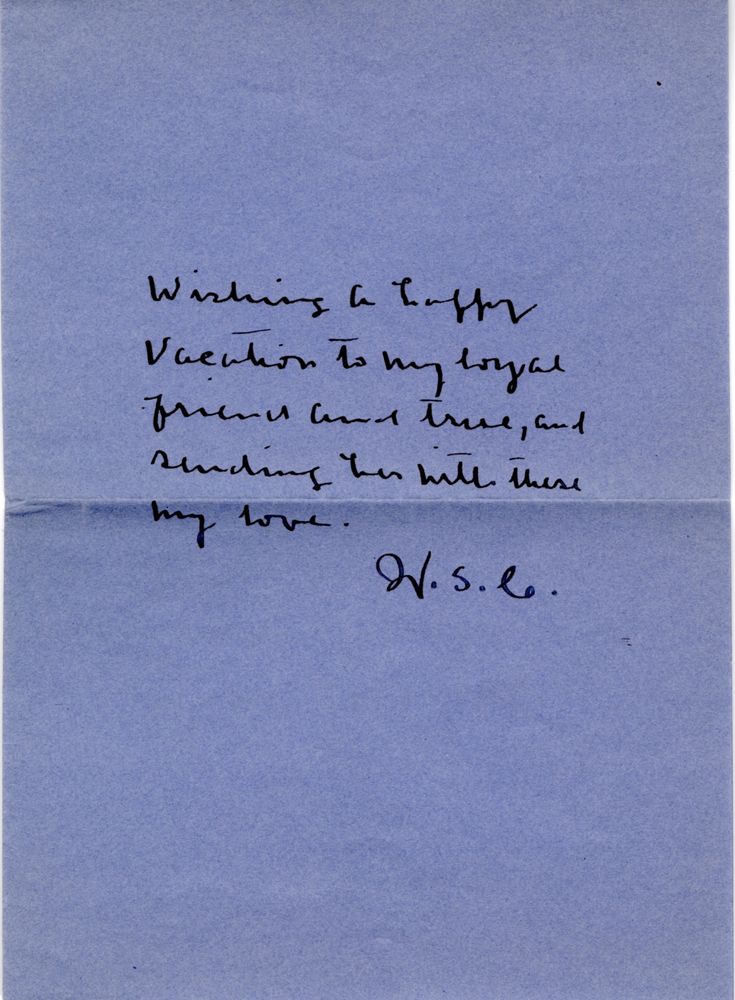 Wishing a happy
Vacation to my loyal
friend and true, and
sending her with these
my love.
W.S.C.